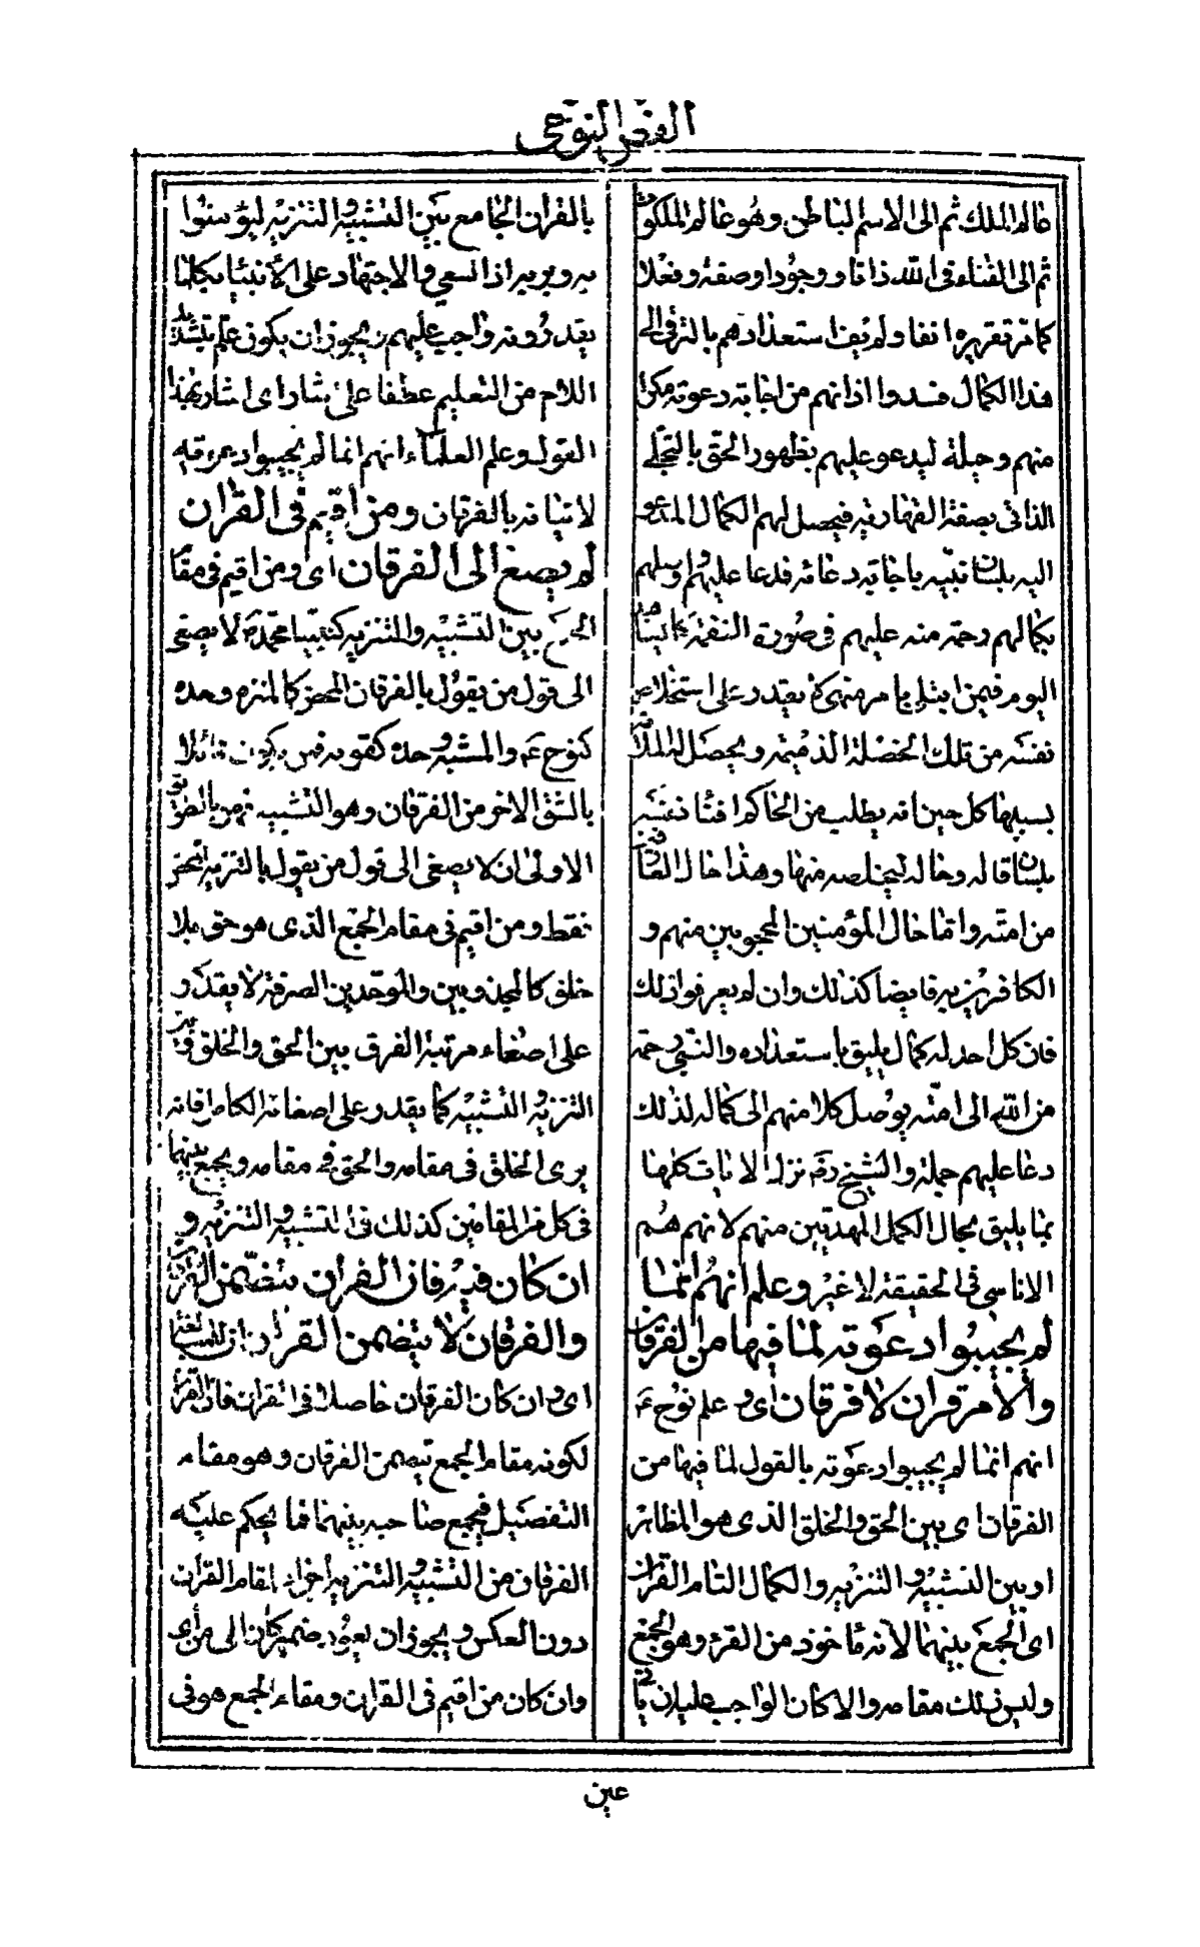 الفص النوحى
عالم الملك ثم الى الاسم الباطن وهو عالم الملكوت
ثم الى الفناء فى الله ذاتا و وجودا وصفة وفعلا
كما مر تقريره انفا ولم يف استعدادهم بالترقى الى
هذا الكمال فسدوا اذانهم من اجابة دعوته مكرا
منهم وحيلة ليدعو عليهم بظهور الحق بالتجلى
الذاتى بصفة القهارية فيحصل لهم الكمال المدعو
اليه بلسان نبيه باجابة دعائه فدعا عليهم واوصلهم
بكمالهم رحمة منه عليهم فى صورة النقمة كما نشاهد
اليوم فيمن ابتلى بامر منهى لم يقدر على استخلاص
نفسه من تلك الخصلة الذميمة ويحصل له الملالة
بسببها كل حين انه يطلب من الحاكم افناء نفسه
بلسان قاله وحاله ليخلصه منها وهذا حال العارفين
من امته واما حال المؤمنين المحجوبين منهم و
الكافرين به فايضا كذلك وان لم يعرفوا ذلك
فان كل احد له كمال يليق باستعداده والنبى رحمة
من الله الى امته يوصل كلا منهم الى كماله لذلك
دعا عليهم جملة والشيخ رضه نزل الايات كلها
بما يليق بحال الكمل المهديين منهم لانهم هم
الاناسى فى الحقيقة لا غير وعلم انهم انما
لم يجيبوا دعوته لما فيها من الفرقان
والامر قران لا فرقان اى وعلم نوح ع
انهم انما لم يجيبوا دعوته بالقول لما فيها من
الفرقان اى بين الحق والخلق الذى هو المظاهر
او بين التشبيه والتنزيه والكمال التام القران
اى الجمع بينهما لانه ماخوذ من القرء وهو الجمع
وليس ذلك مقامه والا كان الواجب عليه ان ياتى
بالقران الجامع بين التشبيه والتنزيه ليؤمنوا
به وبربه اذ السعى والاجتهاد على الانبياء بكل ما
يقدرونه واجب عليهم ويجوز ان يكون علم بتشديد
اللام من التعليم عطفا على اشار اى اشار بهذا
القول وعلم العلماء انهم انما لم يجيبوا دعوته
لاتيانه بالفرقان ومن اقيم فى القران
لم يصغ الى الفرقان اى ومن اقيم فى مقام
الجمع بين التشبيه والتنزيه كنبينا محمد ص لا يصغى
الى قول من يقول بالفرقان المحض كالمنزه وحده
كنوح ع والمشبه وحده كقومه فمن يكون قائلا
بالشق الاخر من الفرقان وهو التشبيه فمن بالطريق
الاولى ان لا يصغى الى قول من يقول بالتنزيه المحض
فقط ومن اقيم فى مقام الجمع الذى هو حق بلا
خلق كالمجذوبين والموحدين الصرفة لا يقدر
على اصغاء مرتبة الفرق بين الحق والخلق و
التنزيه والتشبيه كما يقدر على اصغائه الكامل فانه
يرى الخلق فى مقامه والحق فى مقامه ويجمع بينهما
فى كل من المقامين كذلك فى التشبيه والتنزيه و
ان كان فيه فان القران يتضمن الفرقان
والفرقان لا يتضمن القران
اى وان كان الفرقان حاصلا فى القران فان القران
لكونه مقام الجمع يتضمن الفرقان وهو مقام
التفصيل فيجمع صاحبه بينهما فما يحكم عليه
الفرقان من التشبيه والتنزيه اجزاء لمقام القران
دون العكس ويجوز ان يعود ضمير كان الى من اى
وان كان من اقيم فى القران ومقام الجمع هو فى
عين